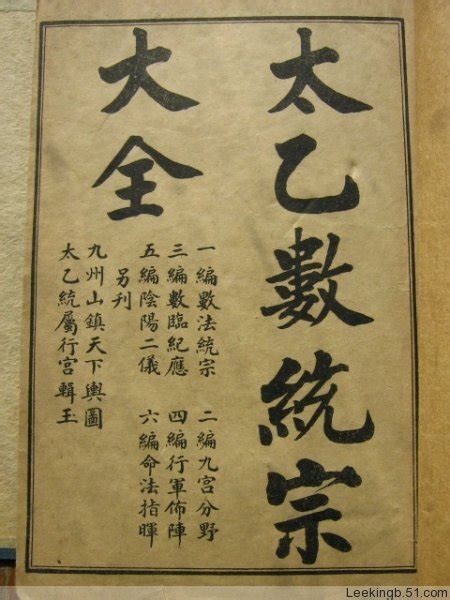 太乙數統宗
大全
一編數法統宗　二編九宮分野
三編數臨紀應　四編行軍佈陣
五編陰陽二儀　六編命法指暉
另刊
九州山鎮天下輿圖
太乙統屬行宮輯玉
Leekingb.51.com